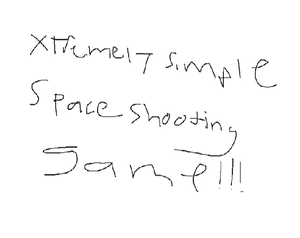 Xtremely simple
Space shooting
game!!!